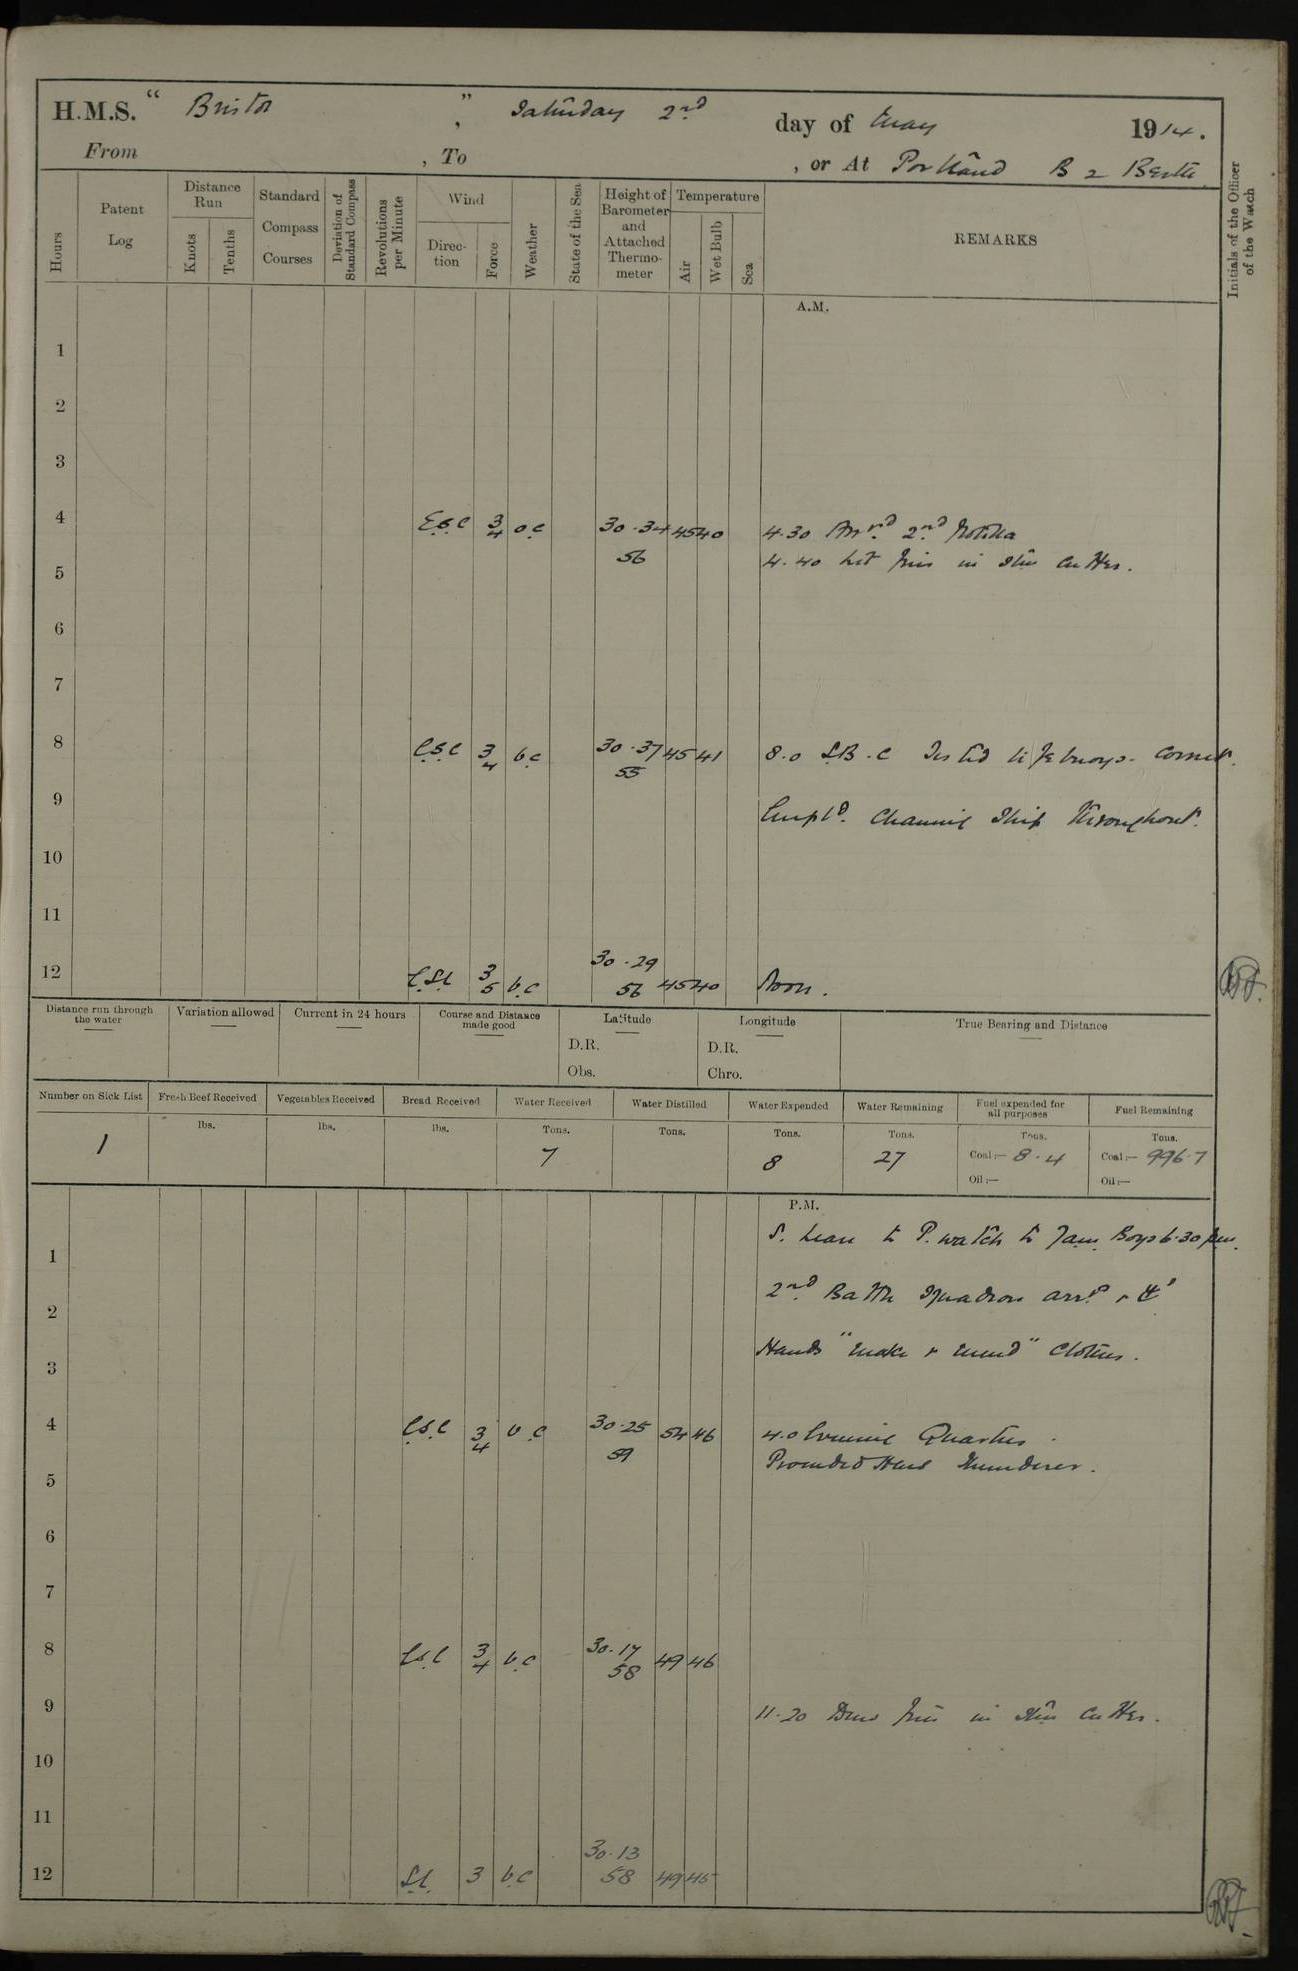 H.M.S. "Bristol", Saturday 2nd day of May 1914.
From , To , or At Portland B 2 Berth
Hours Patent Log Distance Run Knots Tenths Standard Compass Courses Deviation of Standard Compass Revolutions per Minute Wind Direction Force Weather State of the Sea Height of Barometer and Attached Thermometer Temperature Air Wet Bulb Sea REMARKS Initials of the Officer of the Watch
A.M.
1
2
3
4 E.S.E 3/4 o.c 30.34 45 40 4.30 Arrd. 2nd Flotilla
56 4.40 Lit fires in Stm Cutter.
5
6
7
8 E.S.E 3/4 b.c 30.37 45 41 8.0 Tested lifebuoys. Correct.
55
9 Empld. Cleaning Ship throughout.
10
11
12 E.S.E 3/5 b.c 30.29 45 40 Noon.
56
Distance run through the water Variation allowed Current in 24 hours Course and Distance made good Latitude Longitude True Bearing and Distance
D.R. D.R.
Obs. Chro.
Number on Sick List Fresh Beef Received Vegetables Received Bread Received Water Received Water Distilled Water Expended Water Remaining Fuel expended for all purposes Fuel Remaining
lbs. lbs. lbs. Tons. Tons. Tons. Tons. Tons. Tons.
1 7 8 27 Coal:— 8.4 Coal:— 996.7
Oil:— Oil:—
P.M.
Leave to P. watch to 7am. Boys 6.30 pm.
1
2nd Battle Squadron arrd.
2
Hands "make & mend" clothes.
3
4 E.S.E 3/4 b.c 30.25 54 46 4.0 Evening Quarters.
59
5
6
7
8 E.S.E 3/4 b.c 30.17 49 46
58
9 11.20 fires in Stm Cutter.
10
11
12 S.E. 3 b.c 30.13 49 45
58